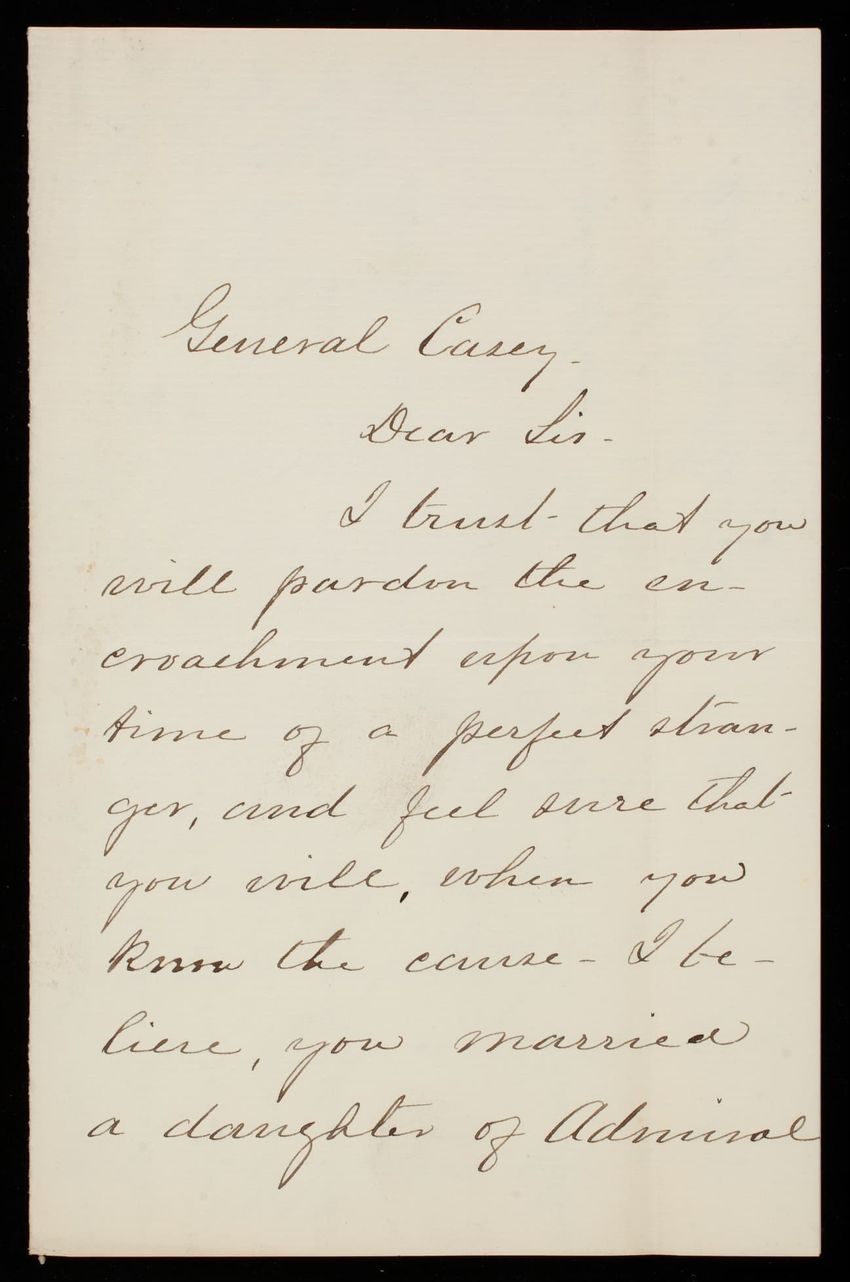 General Casey -
Dear Sir -
I trust - that you
will pardon the en-
croachment upon your
time of a perfect stran-
ger, and feel sure that -
you will, when you
know the cause - I be-
lieve, you married
a daughter of Admiral